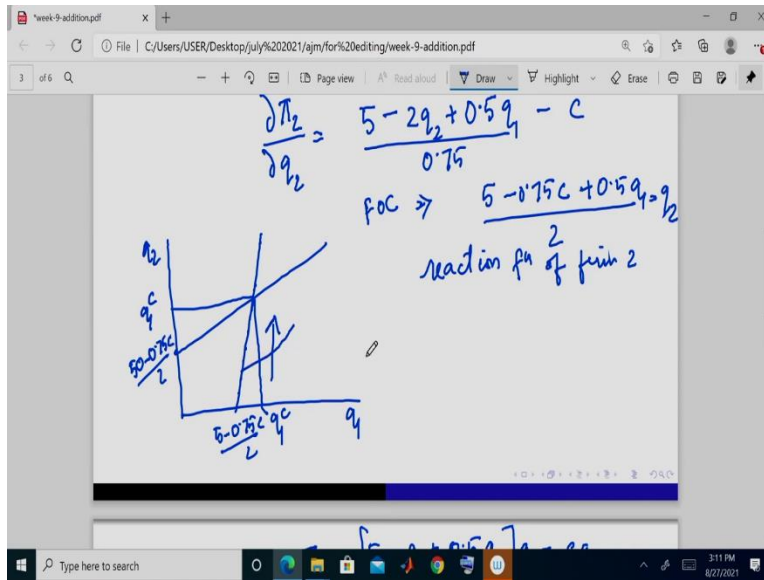 *week-9-addition.pdf
File | C:/Users/USER/Desktop/july%202021/ajm/for%20editing/week-9-addition.pdf
3 of 6
Page view
Read aloud
Draw
Highlight
Erase
∂π₂/∂q₂ = (5 - 2q₂ + 0.5q₁ - C)/0.75
FOC ⇒ (5 - 0.75C + 0.5q₁)/2 = q₂
reaction fn of firm 2
q₂
q₁ᶜ
(50-0.75C)/2
(5-0.75C)/2 q₁ᶜ q₁
Type here to search
3:11 PM
8/27/2021